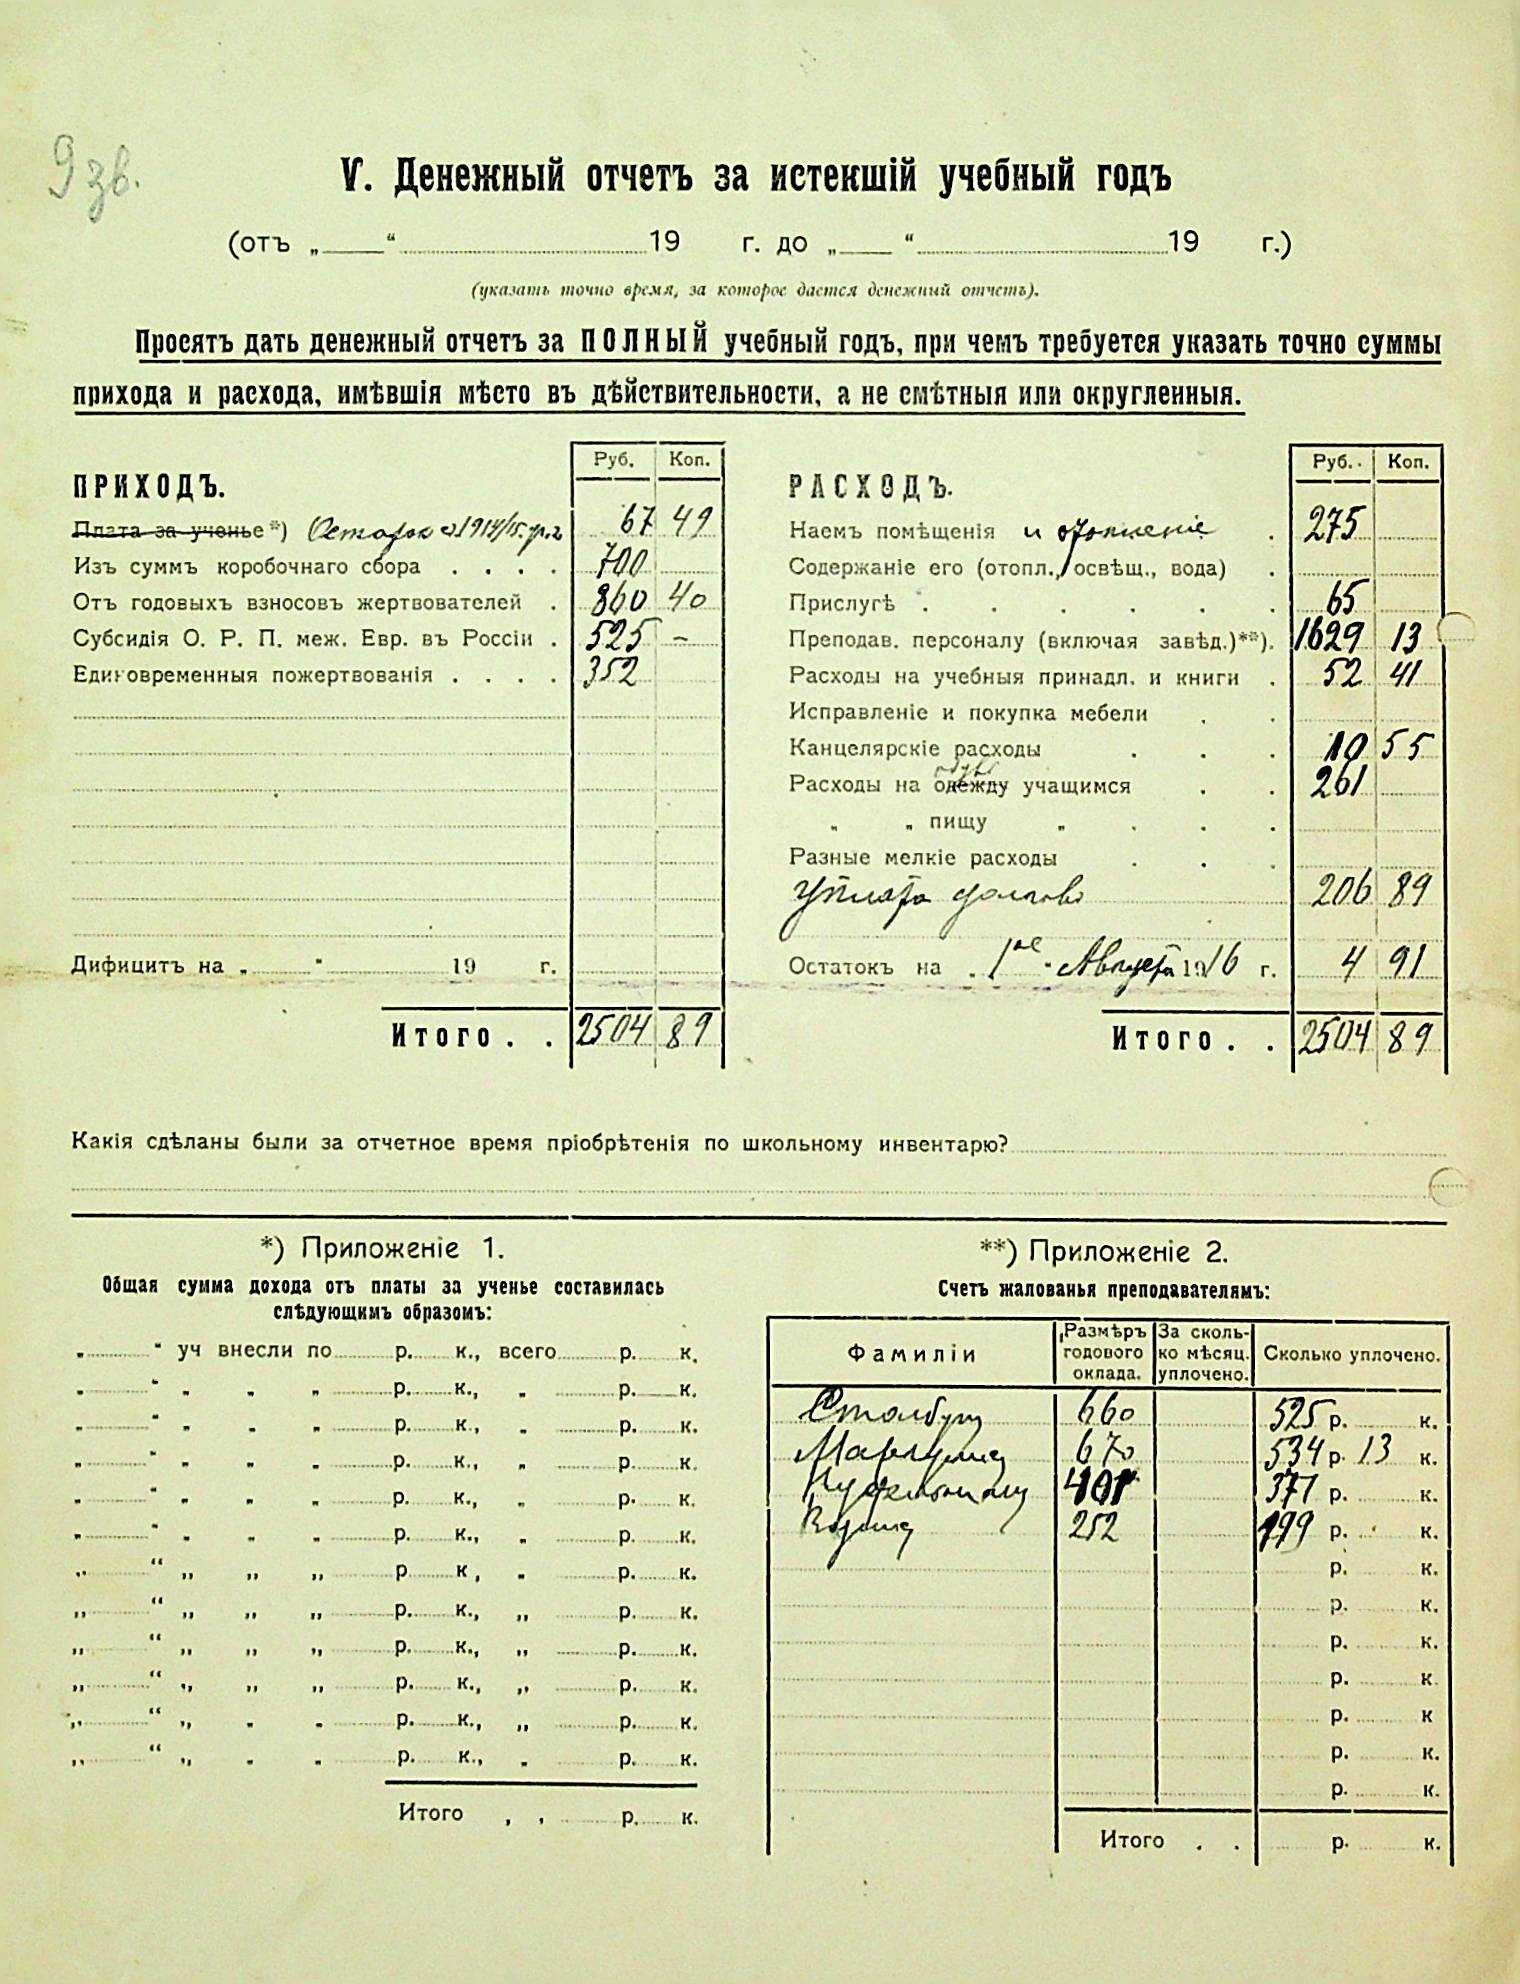 9 зв.
V. Денежный отчетъ за истекшій учебный годъ
(отъ „____“ 19 г. до „____“ 19 г.)
(указать точно время, за которое дается денежный отчетъ).
Просятъ дать денежный отчетъ за ПОЛНЫЙ учебный годъ, при чемъ требуется указать точно суммы
прихода и расхода, имѣвшія мѣсто въ дѣйствительности, а не смѣтныя или округленныя.
ПРИХОДЪ. Руб. Коп.
Плата за ученье*) Остаток с 1914/15 67 49
Изъ суммъ коробочнаго сбора . . . . 700
Отъ годовыхъ взносовъ жертвователей . 860 40
Субсидія О. Р. П. меж. Евр. въ Россіи . 525 –
Единовременныя пожертвованія . . . . 352
Дифицитъ на „ “ 19 г.
Итого . . 2504 89
РАСХОДЪ. Руб. Коп.
Наемъ помѣщенія и отопленіе . 275
Содержаніе его (отопл., освѣщ., вода) .
Прислугѣ . . . . . . 65
Преподав. персоналу (включая завѣд.)**). 1629 13
Расходы на учебныя принадл. и книги . 52 41
Исправленіе и покупка мебели . .
Канцелярскіе расходы . . . 10 55
обувь
Расходы на одежду учащимся . . 261
„ „ пищу „ . . .
Разные мелкіе расходы . . .
Уплата долгов 206 89
Остатокъ на „1ое“ Августа 1916 г. 4 91
Итого . . 2504 89
Какія сдѣланы были за отчетное время пріобрѣтенія по школьному инвентарю?
*) Приложеніе 1.
Общая сумма дохода отъ платы за ученье составилась
слѣдующимъ образомъ:
„ “ уч внесли по р. к., всего р. к.
„ “ „ „ „ р. к., „ р. к.
„ “ „ „ „ р. к., „ р. к.
„ “ „ „ „ р. к., „ р. к.
„ “ „ „ „ р. к., „ р. к.
„ “ „ „ „ р. к., „ р. к.
„ “ „ „ „ р. к , „ р. к.
„ “ „ „ „ р. к., „ р. к.
„ “ „ „ „ р. к., „ р. к.
„ “ „ „ „ р. к., „ р. к.
„ “ „ „ „ р. к., „ р. к.
„ “ „ „ „ р. к., „ р. к.
Итого , , р. к.
**) Приложеніе 2.
Счетъ жалованья преподавателямъ:
Фамиліи
Размѣръ годового оклада.
За сколько мѣсяц. уплочено.
Сколько уплочено.
660 525 р. к.
670 534 р. 13 к.
371 р. к.
252 199 р. к.
р. к.
р. к.
р. к.
р. к.
р. к
р. к.
р. к.
Итого . . р. к.